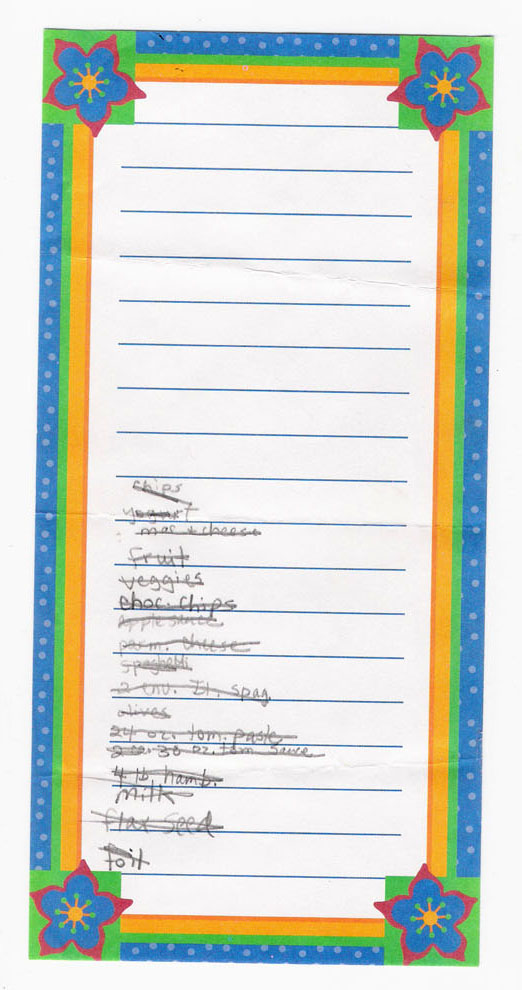 chips
yogurt
mac + cheese
fruit
veggies
choc. chips
applesauce
parm. cheese
spaghetti
2 env. It. spag.
olives
24 oz. tom. paste
30 oz. tom sauce
4 lb hamb.
milk
flax seed
foil